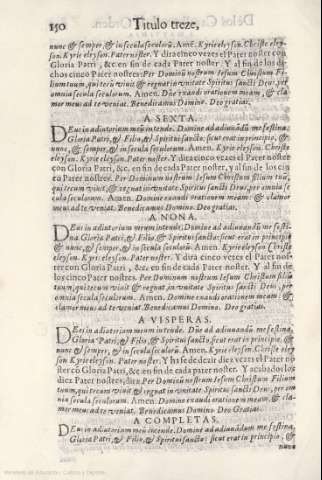 150 Titulo treze,
nunc & semper, & in secula seculorũ. Amẽ. Kyrie eleyson. Christe eley-
son. Kyrie eleyson. Pater noster. Y dira cinco vezes el Pater noster con
Gloria Patri, &c. en fin de cada Pater noster. Y al fin de los di-
chos cinco Pater nostres: Per Dominũ nostrum Iesum Christum Fi-
lium tuum, qui tecũ vivit & regnat in vnitate Spiritus sancti Deus, per
omnia secula seculorum. Amen. Dñe exaudi orationem meam, & cla-
mor meus ad te veniat. Benedicamus Domino. Deo gratias.
A SEXTA.
DEus in adiutorium meũ intende. Domine ad adiuuãdũ me festina,
Gloria Patri, & Filio, & Spiritui sancto: sicut erat in principio, &
nunc, & semper, & in secula seculorum. Amen. Kyrie eleyson. Christe
eleyson. Kyrie eleyson. Pater noster. Y dira cinco vezes el Pater noster
con Gloria Patri, &c. en fin de cada Pater noster, y al fin de los cin
co Pater nostres. Per Dominum nostrum Iesum Christum Filium tuũ,
qui tecum vivit, & regnat in vnitate Spiritus sancti Deus, per omnia se
cula seculorum. Amen. Domine exaudi orationem meam, & clamor
meus ad te veniat. Benedicamus Domino. Deo gratias.
A NONA.
DEus in adiutorium meum intende, Domine ad adiuuandũ me festi
na. Gloria Patri, & Filio, & Spiritui sancto: sicut erat in principio
& nunc, & semper, & in secula seculorũ. Amen. Kyrie eleyson. Christe
eleyson. Kyrie eleyson. Pater noster. Y dira cinco vezes el Pater nos-
ter con Gloria Patri, &c. en fin de cada Pater noster. Y al fin de
los cinco Pater nostres. Per Dominum nostrum Iesum Christum filiũ
tuum, qui tecum vivit & regnat in vnitate Spiritus sancti Deus, per
omnia secula seculorum. Amen. Domine exaudi orationem meam: &
clamor meus ad te veniat. Benedicamus Domino. Deo gratias.
A VISPERAS.
DEus in adiutorium meum intende. Dñe ad adiuuandũ me festina,
Gloria Patri, & Filio, & Spiritui sancto, sicut erat in principio, &
nunc & semper, & in secula seculorum. Amen. Kyrie eleyson. Christe eley
son. Kyrie eleyson. Pater noster. Y ha se de dezir diez vezes el Pater nos-
ter cõ Gloria Patri, &c. en fin de cada pater noster. Y acabados los
diez Pater nostres, dira Per Dominum nostrum Iesum Christum Filium
tuum, qui tecum vivit & regnat in vnitate Spiritus sancti Deus, per om
nia secula seculorum. Amen. Domine exaudi orationem meam, & cla-
mor meus ad te veniat. Benedicamus Domino Deo Gratias.
A COMPLETAS.
DEus in adiutorium meũ intende. Domine ad adiuuandũm me festina,
Gloria Patri, & Filio, & Spiritui sancto: sicut erat in principio, &
nunc
Ministerio de Educación, Cultura y Deporte